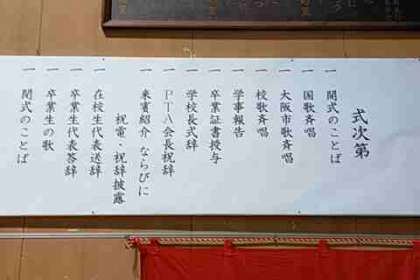 式次第
一 開式のことば
一 国歌斉唱
一 大阪市歌斉唱
一 校歌斉唱
一 学事報告
一 卒業証書授与
一 学校長式辞
一 PTA会長祝辞
一 来賓紹介 ならびに
祝電・祝辞披露
一 在校生代表送辞
一 卒業生代表答辞
一 卒業生の歌
一 閉式のことば